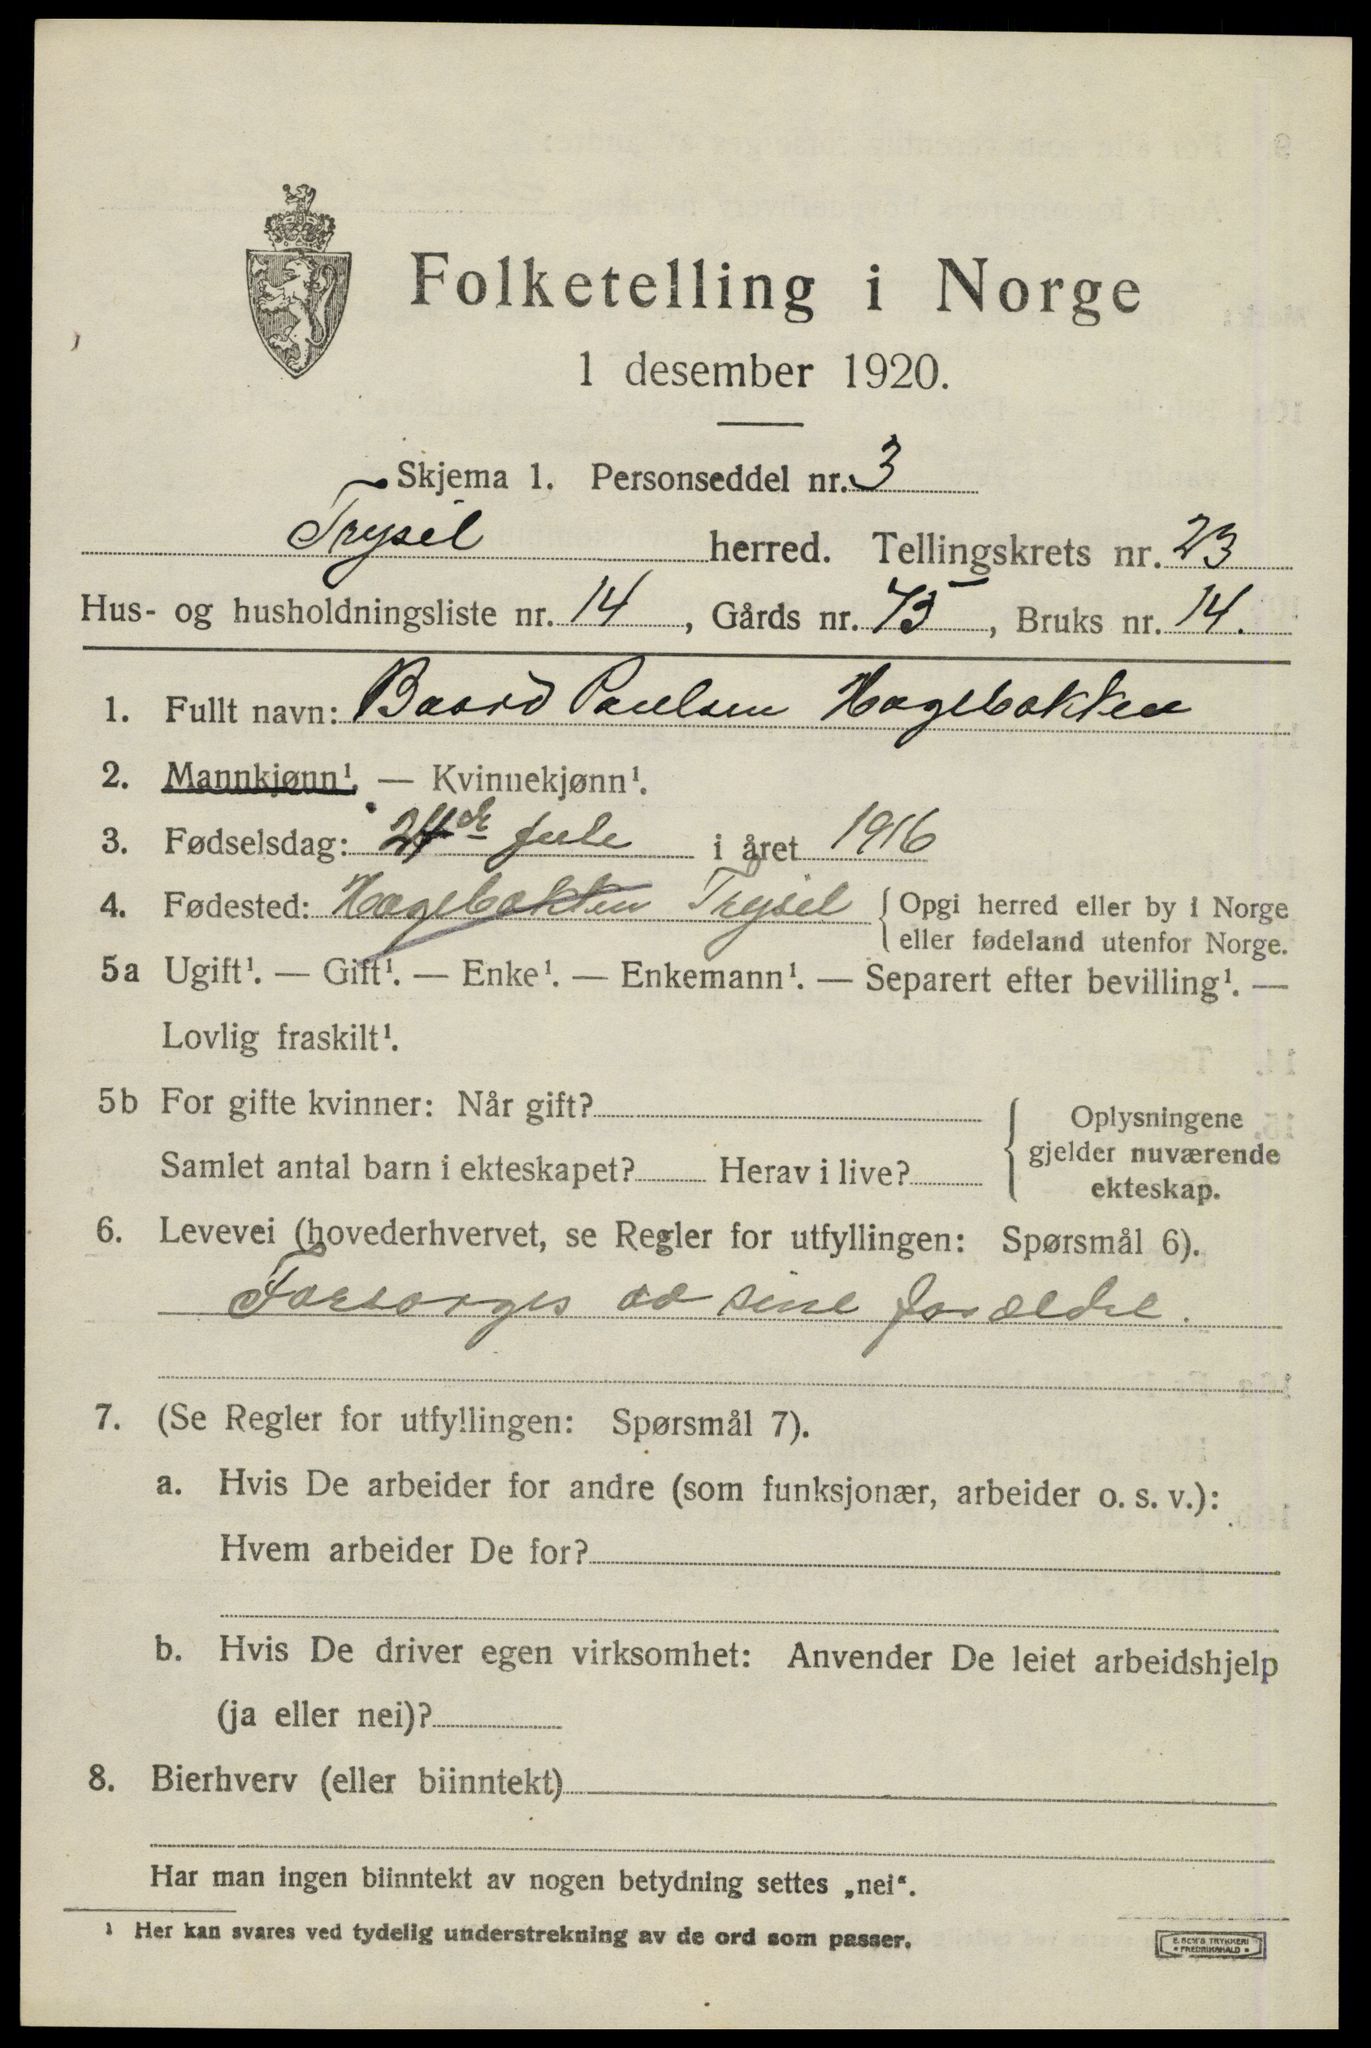 Folketelling i Norge
1 desember 1920.
Skjema 1. Personseddel nr. 3
Trysil herred. Tellingskrets nr. 23
Hus- og husholdningsliste nr. 14, Gårds nr. 75, Bruks nr. 14.
1. Fullt navn: Baard Paulsen Hagebakken
2. Mannkjønn¹. — Kvinnekjønn¹.
3. Fødselsdag: 24de jule i året 1916
4. Fødested: Hagebakken Trysil { Opgi herred eller by i Norge
eller fødeland utenfor Norge.
5a Ugift¹. — Gift¹. — Enke¹. — Enkemann¹. — Separert efter bevilling¹. —
Lovlig fraskilt¹.
5b For gifte kvinner: Når gift?
Samlet antal barn i ekteskapet? Herav i live?
Oplysningene
gjelder nuværende
ekteskap.
6. Levevei (hovederhvervet, se Regler for utfyllingen: Spørsmål 6).
Forsørges av sine forældre.
7. (Se Regler for utfyllingen: Spørsmål 7).
a. Hvis De arbeider for andre (som funksjonær, arbeider o. s. v.):
Hvem arbeider De for?
b. Hvis De driver egen virksomhet: Anvender De leiet arbeidshjelp
(ja eller nei)?
8. Bierhverv (eller biinntekt)
Har man ingen biinntekt av nogen betydning settes „nei“.
¹ Her kan svares ved tydelig understrekning av de ord som passer.
E. SEM'S TRYKKERI
FREDRIKSHALD